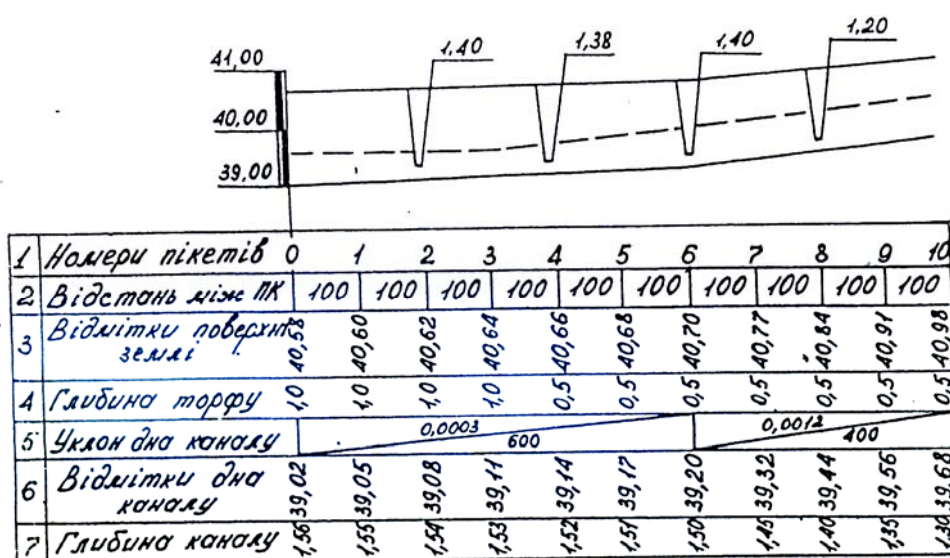 1,40
1,38
1,40
1,20
41,00
40,00
39,00
1 Номери пікетів 0 1 2 3 4 5 6 7 8 9 10
2 Відстань між ПК 100 100 100 100 100 100 100 100 100 100
3 Відмітки поверхні 40,58 40,60 40,62 40,64 40,66 40,68 40,70 40,77 40,84 40,91 40,98
землі
4 Глибина торфу 1,0 1,0 1,0 1,0 0,5 0,5 0,5 0,5 0,5 0,5 0,5
5 Уклон дна каналу 0,0003 600 0,0012 400
6 Відмітки дна 39,02 39,05 39,08 39,11 39,14 39,17 39,20 39,32 39,44 39,56 39,68
каналу
7 Глибина каналу 1,56 1,55 1,54 1,53 1,52 1,51 1,50 1,45 1,40 1,35 1,30